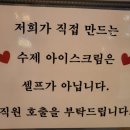 저희가 직접 만드는
수제 아이스크림은
셀프가 아닙니다.
직원 호출을 부탁드립니다